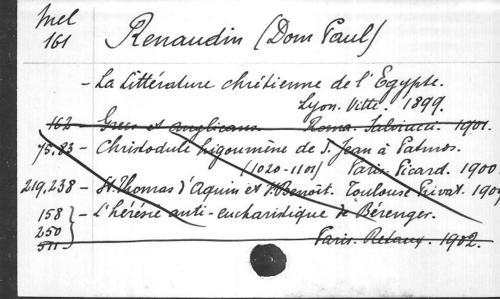 Mel
161
Renaudin (Dom Paul)
- La Littérature chrétienne de l'Egypte.
Lyon. Vitte. 1899.
162 - Grecs et anglicans. Rome. Salviucci. 1901.
75,83 - Christodule higoumène de S. Jean à Patmos.
(1020-1101) Paris. Picard. 1900.
219,238 - St. Thomas d'Aquin et S. Benoît. Toulouse Privat. 190
158 - L'hérésie anti-eucharistique de Bérenger.
250
511 Paris. Retaux. 1902.